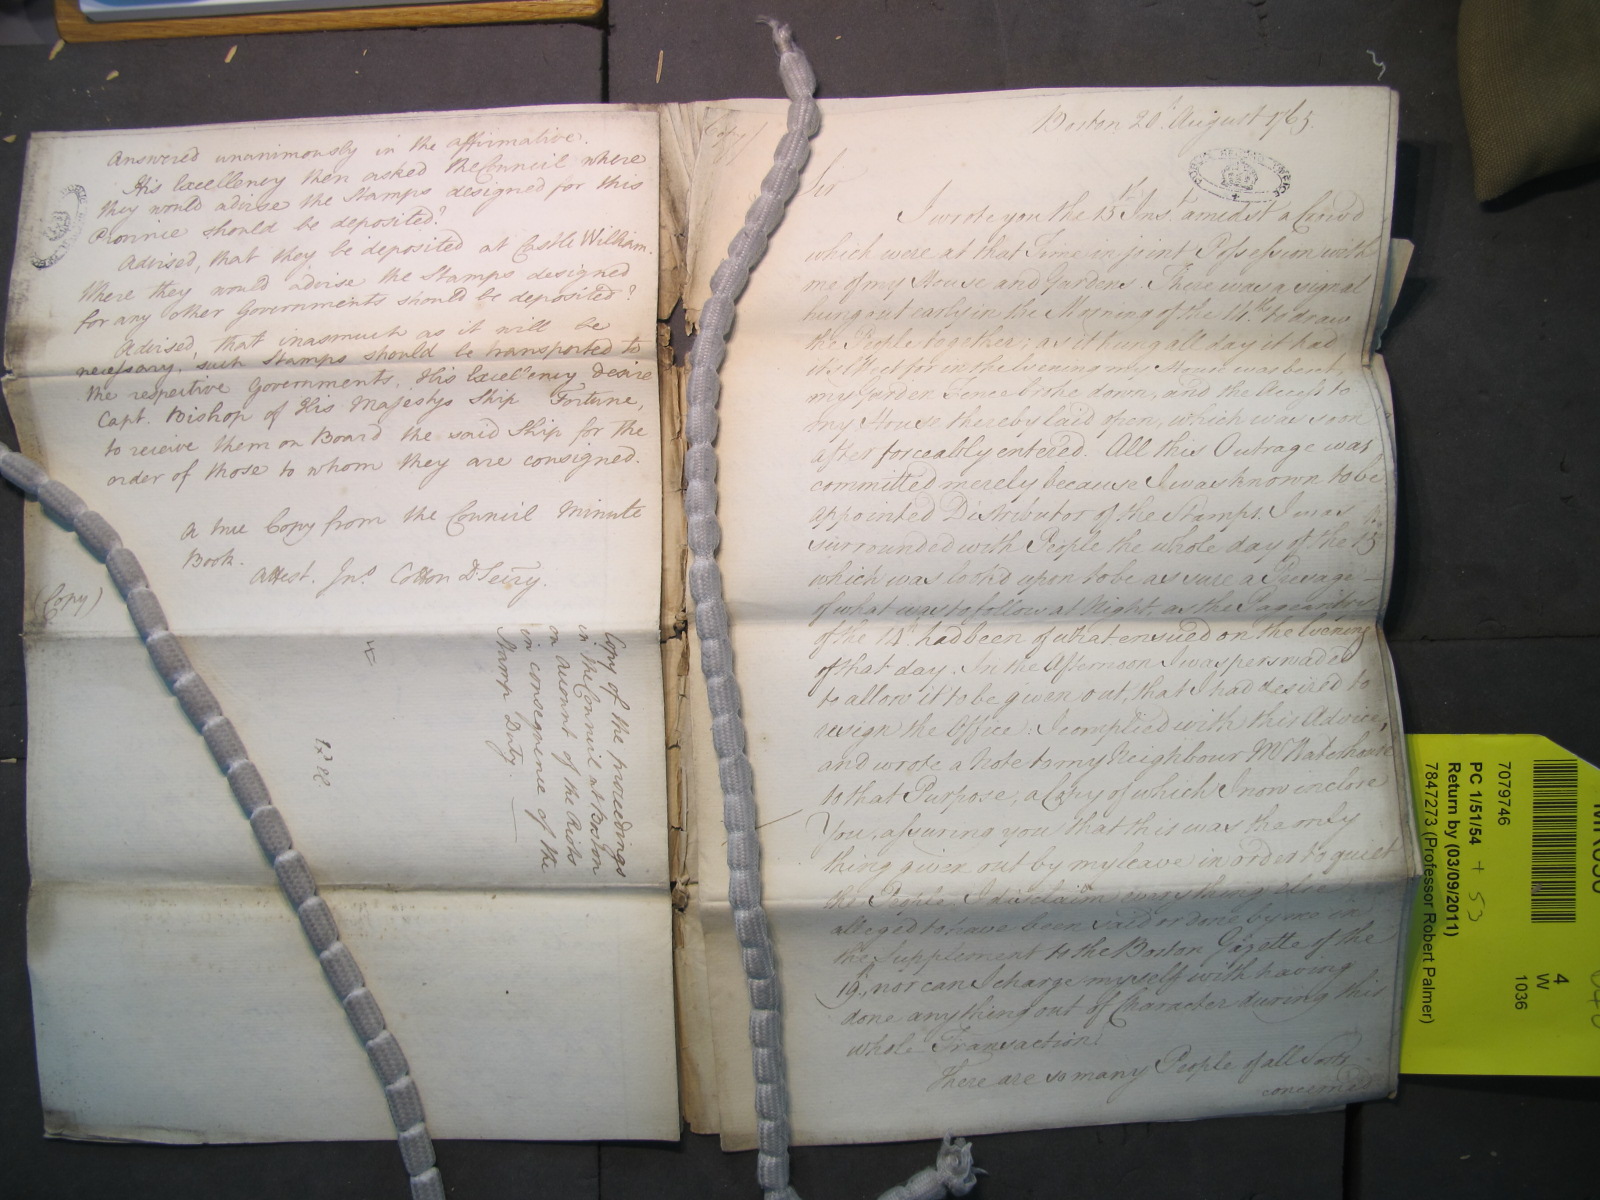 Answered unanimously in the affirmative.
His Excellency then asked the Council where
they would advise the Stamps designed for this
Province should be deposited?
Advised, that they be deposited at Castle William.
Where they would advise the Stamps designed
for any other Governments should be deposited?
Advised, that inasmuch as it will be
necessary, such Stamps should be transported to
the respective Governments, His Excellency desire
Capt. Bishop of His Majestys Ship Fortune,
to receive them on Board the said Ship for the
order of those to whom they are consigned.
A true Copy from the Council Minute
Book.
Attest. Jno. Cotton D. Secry.
(Copy)
Copy of the proceedings
in the Council at Boston
on account of the Riots
in consequence of the
Stamp Duty.
(Copy)
Boston 20th August 1765.
Sir
I wrote you the 15th Inst. amidst a Crowd
which were at that Time in joint Possession with
me of my House and Gardens. There was a signal
hung out early in the Morning of the 14th to draw
the People together; as it hung all day it had
its Effect for in the Evening my House was beset,
my Garden Fence broke down, and the Access to
my House thereby laid open, which was soon
after forceably entered. All this Outrage was
committed merely because I was known to be
appointed Distributor of the Stamps. I was
surrounded with People the whole day of the 15th
which was look'd upon to be as sure a Presage
of what was to follow at Night, as the Pageantry
of the 14th had been of what ensued on the Evening
of that day. In the Afternoon I was persuaded
to allow it to be given out, that I had desired to
resign the Office: I complied with this Advice,
and wrote a Note to my Neighbour Mr Waterhouse
to that Purpose, a Copy of which I now inclose
You, assuring you that this was the only
thing given out by my leave in order to quiet
the People. I disclaim every thing else
alleged to have been said or done by me in
the Supplement to the Boston Gazette of the
19th, nor can I charge myself with having
done anything out of Character during this
whole Transaction.
There are so many People of all Sorts
concerned
PUBLIC RECORD OFFICE
7079746
PC 1/51/54 + 53
Return by (03/09/2011)
7847273 (Professor Robert Palmer)
4
W
1036